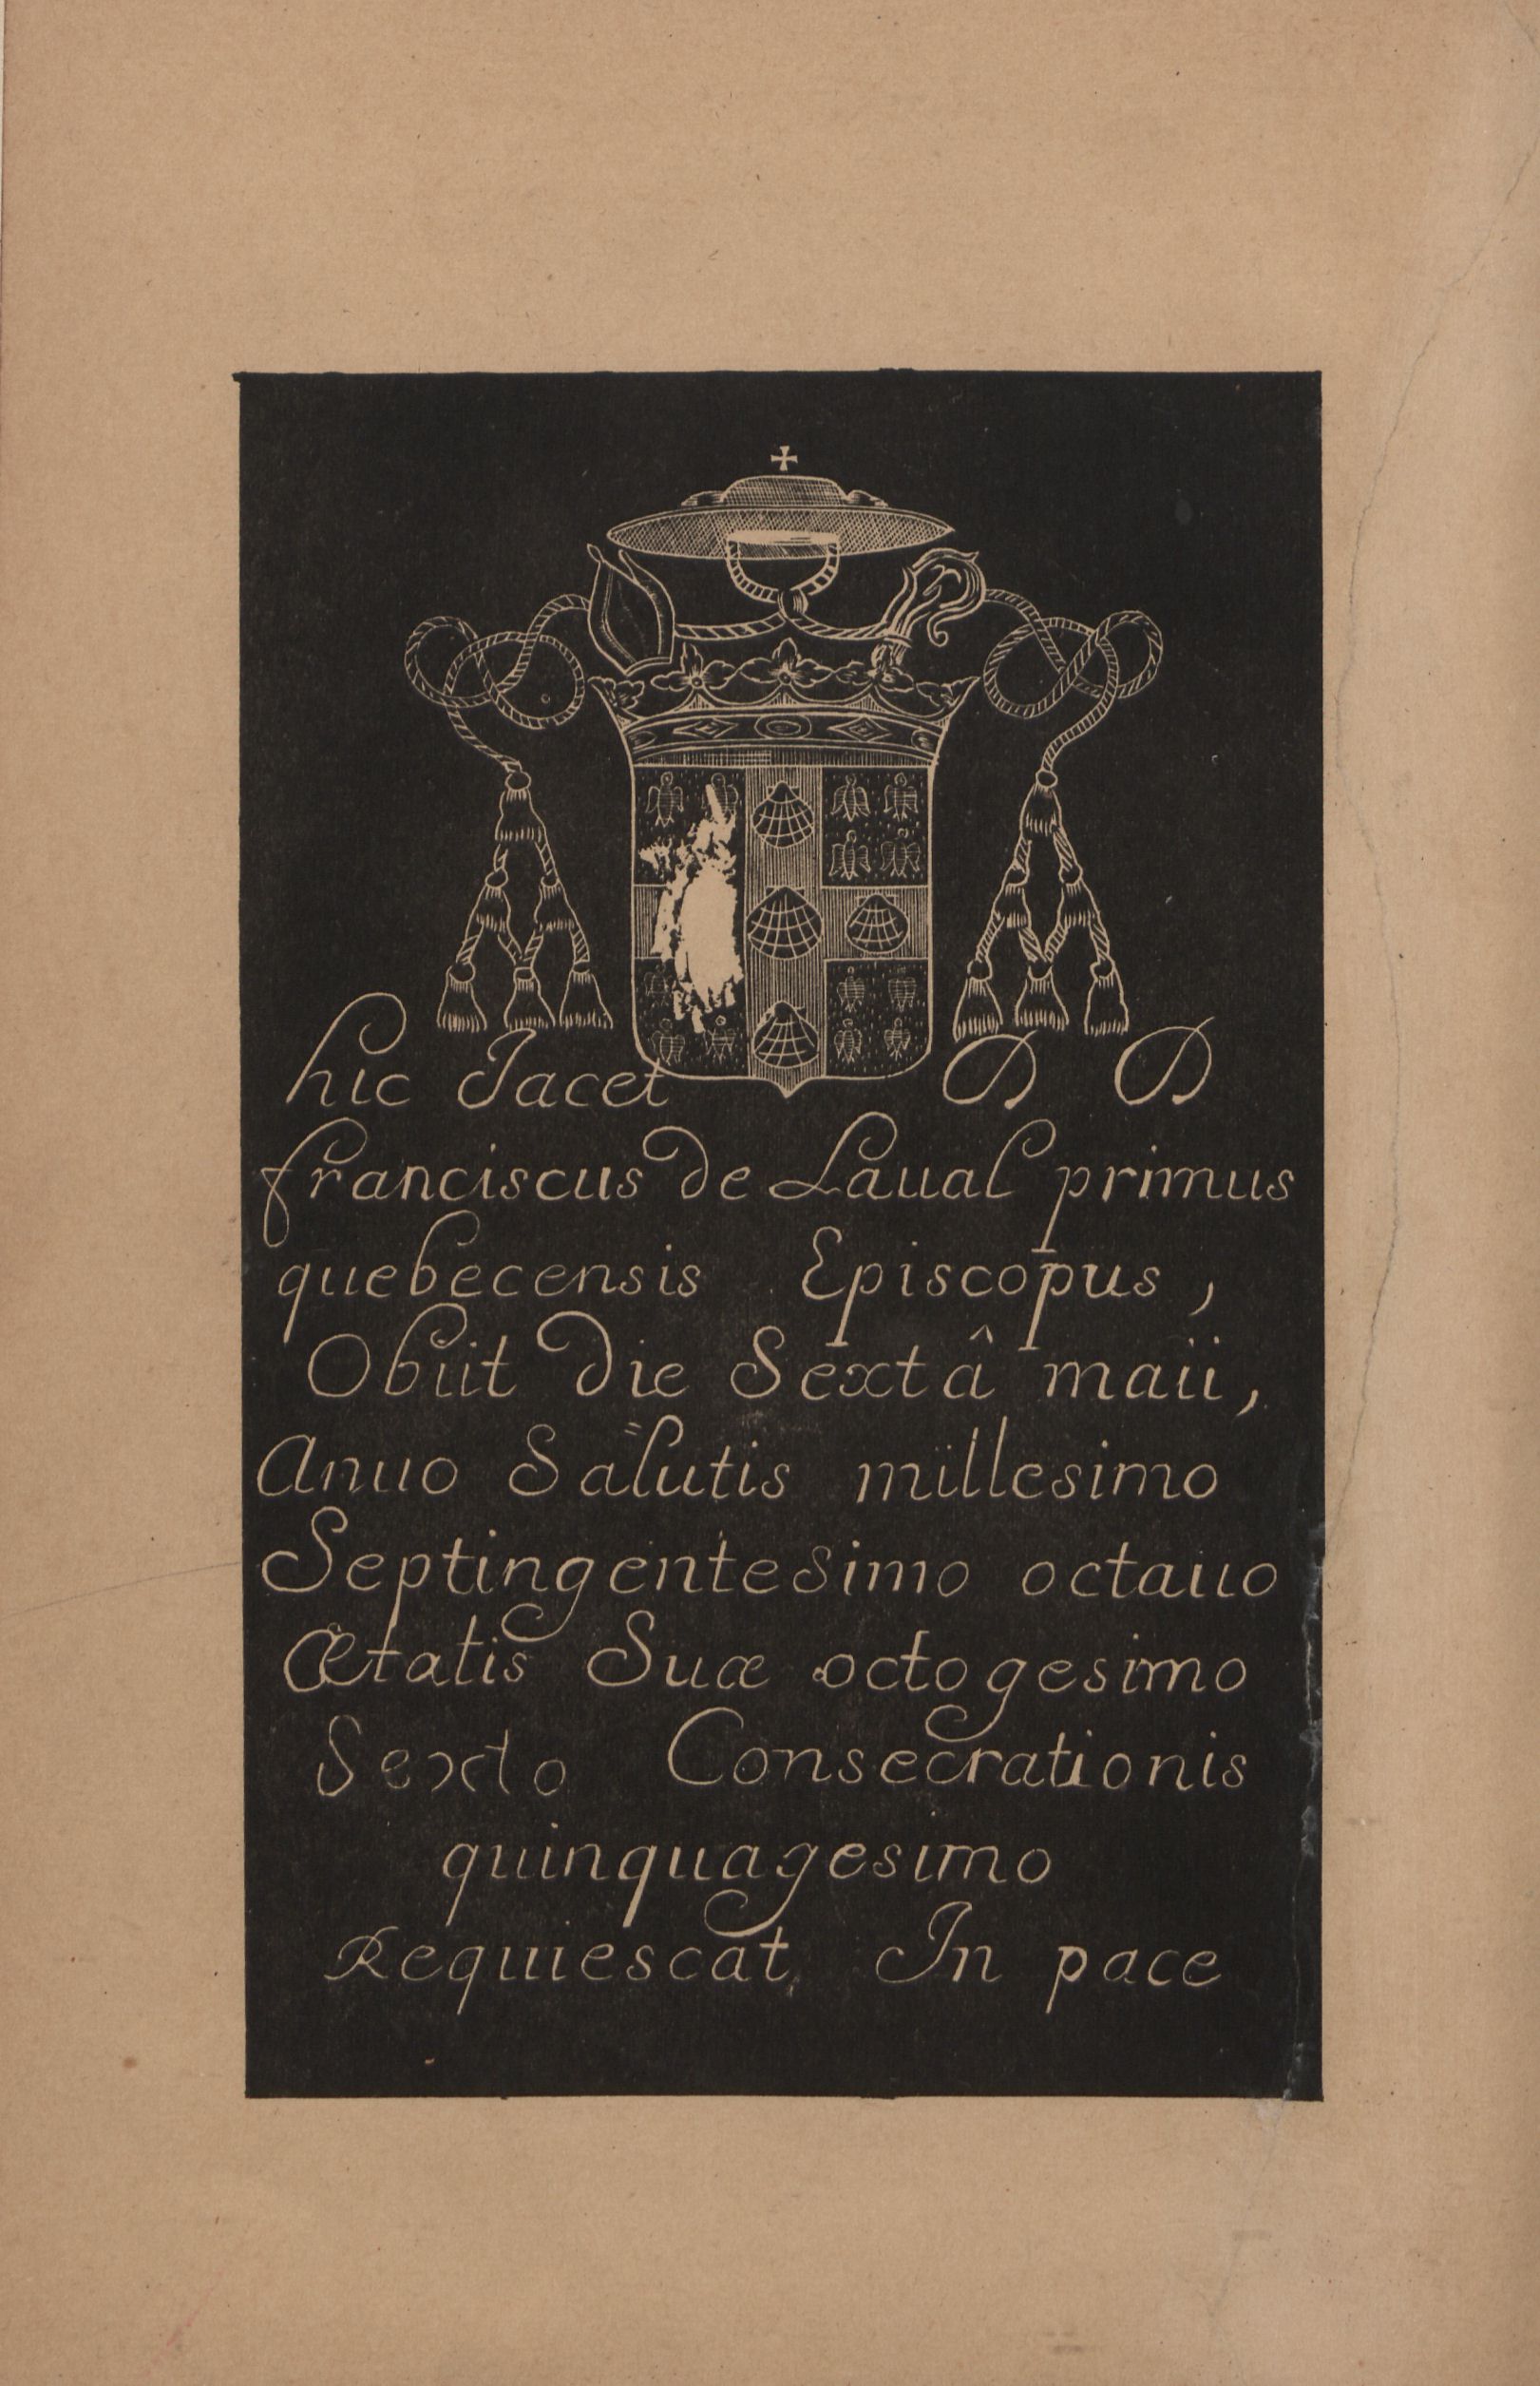 hic Jacet D D
franciscus de Laual primus
quebecensis Episcopus,
Obiit die Sextâ maii,
Anno Salutis millesimo
Septingentesimo octauo
Ætatis Suæ octogesimo
Sexto Consecrationis
quinquagesimo
Requiescat In pace